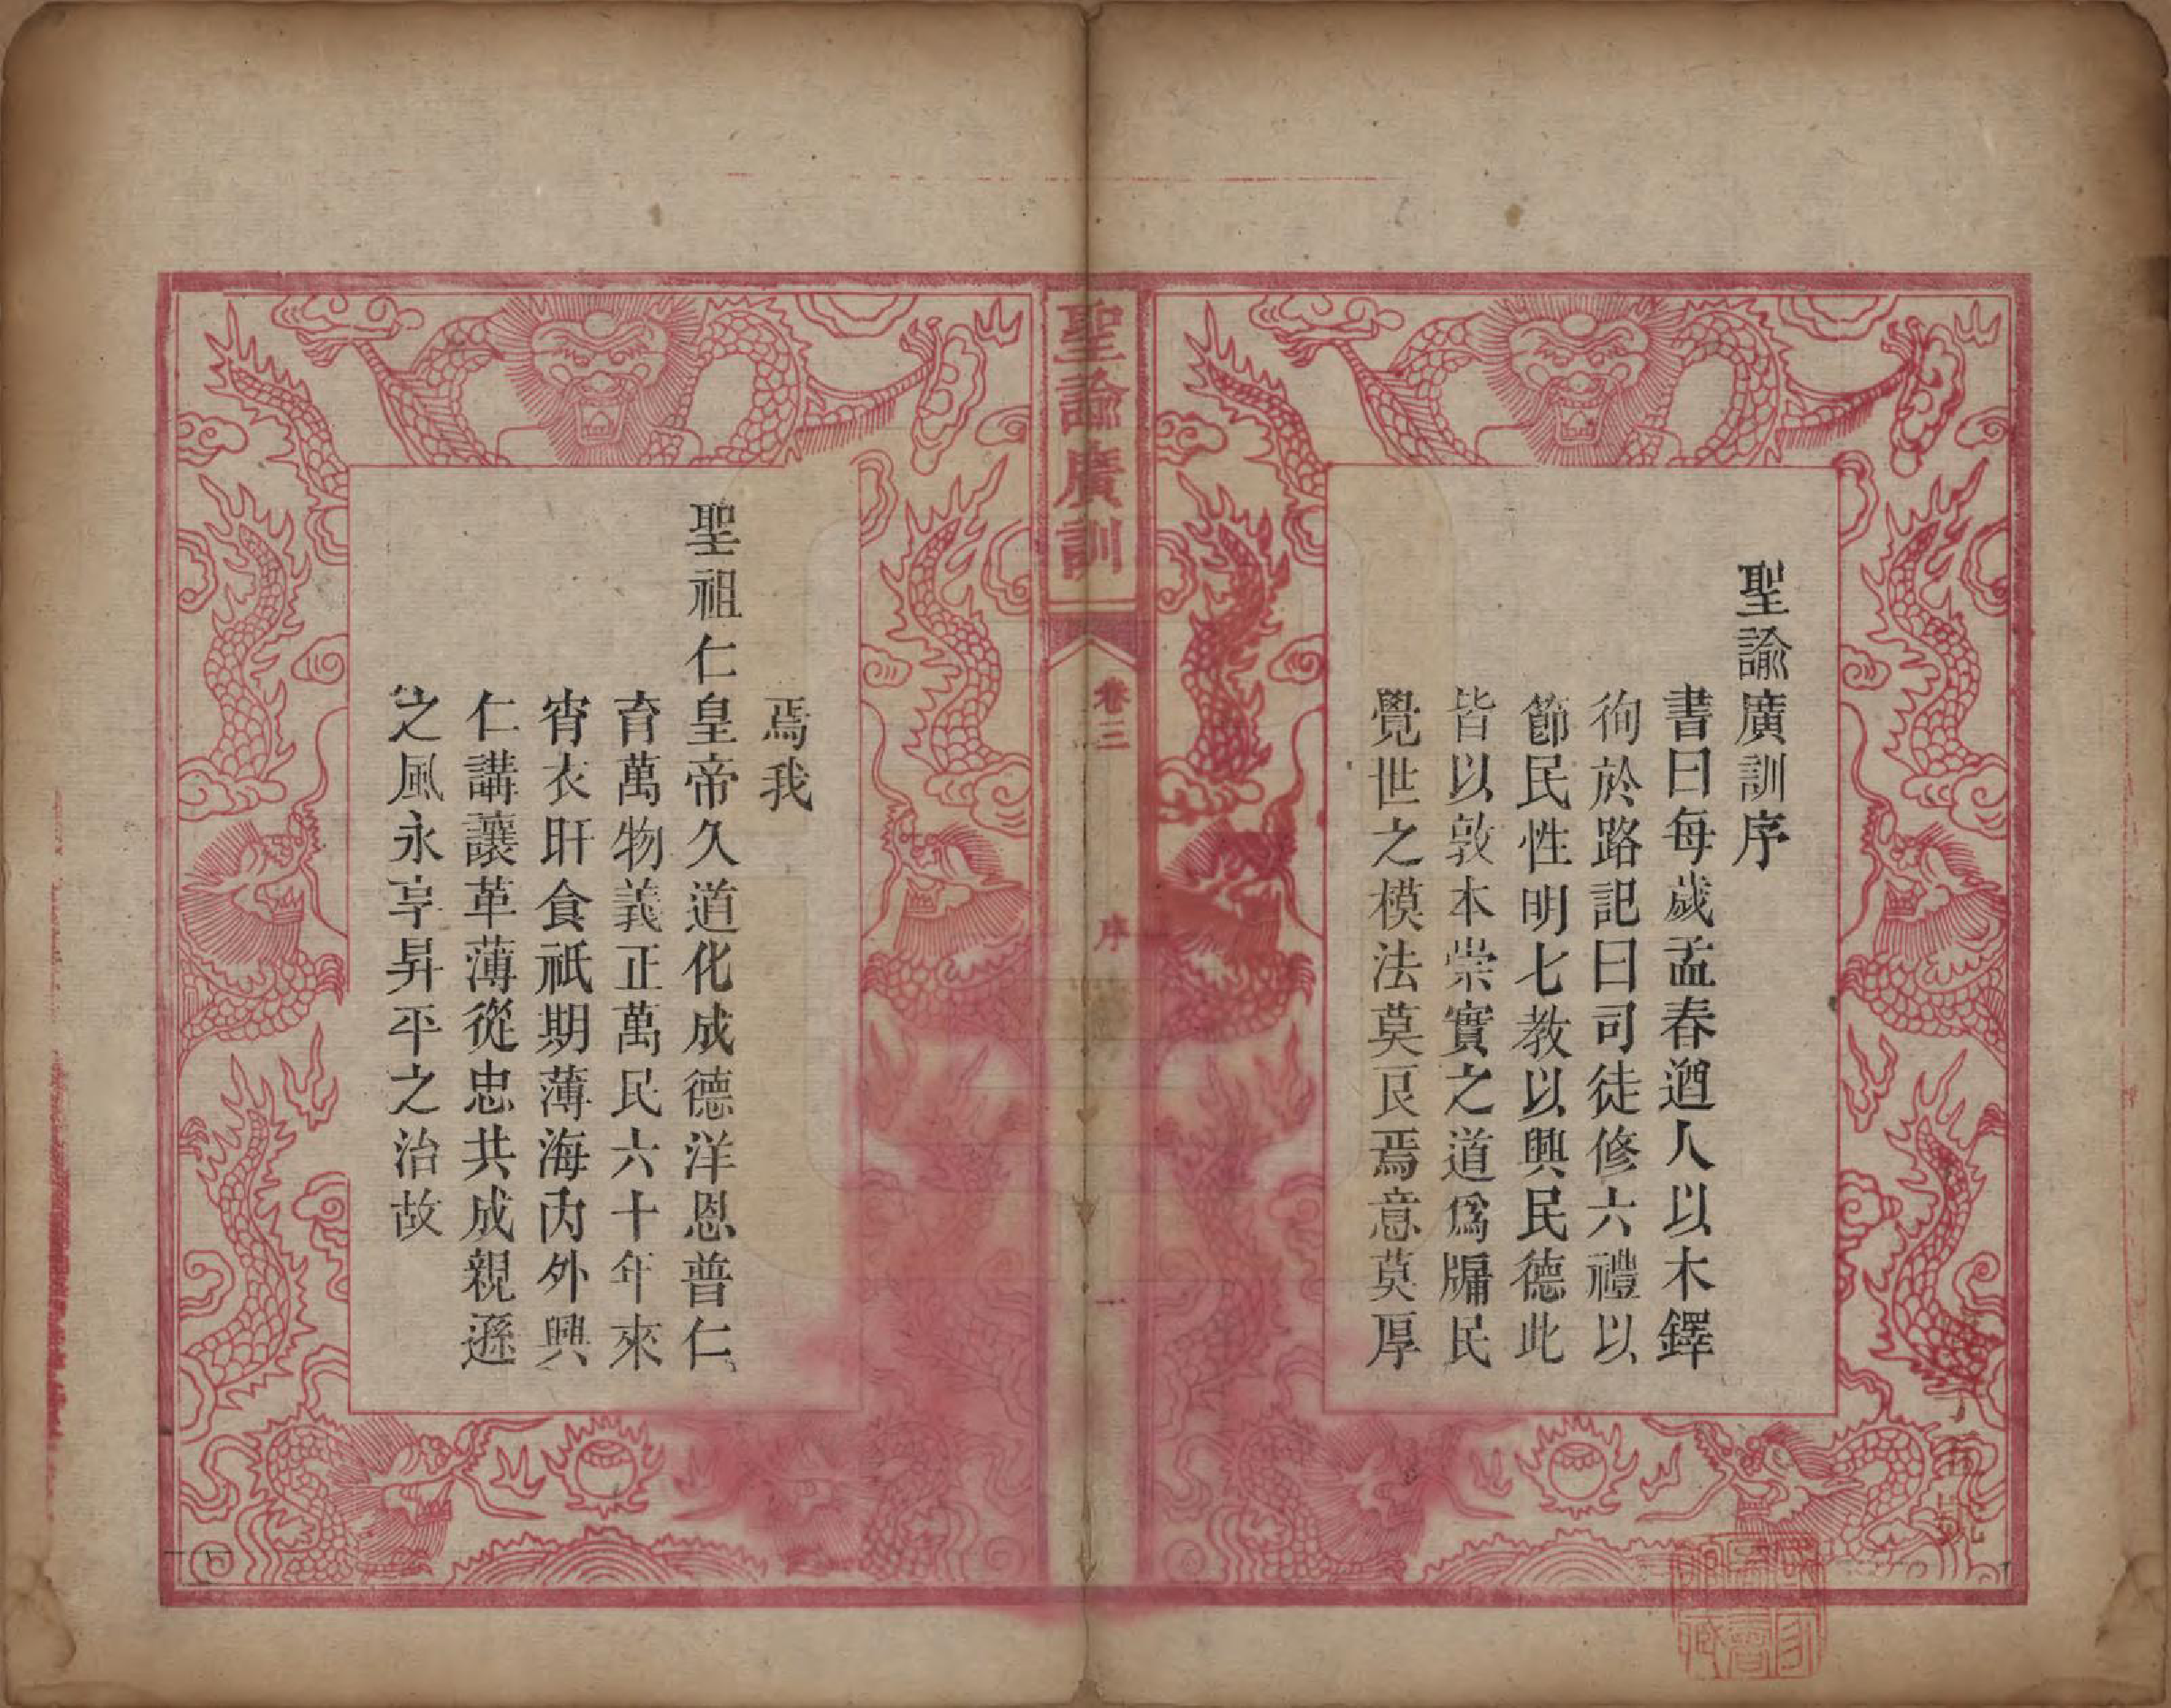 聖諭廣訓序
書曰每歲孟春遒人以木鐸
徇於路記曰司徒修六禮以
節民性明七教以興民德此
皆以敦本崇實之道爲牖民
覺世之模法莫良焉意莫厚
聖諭廣訓
卷三
序
一
焉我
聖祖仁皇帝久道化成德洋恩普仁
育萬物義正萬民六十年來
宵衣旰食祗期薄海內外興
仁講讓革薄從忠共成親遜
之風永享昇平之治故